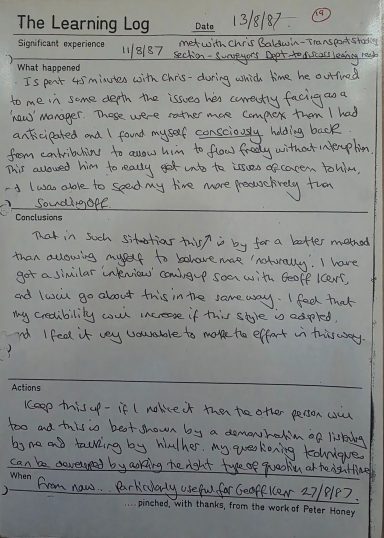 The Learning Log Date 13/8/87. (19)
Significant experience 11/8/87 met with Chris Baldwin - Transport Studies
Section - Surveyors Dept to discuss training needs
What happened
I spent 45 minutes with Chris - during which time he outlined
to me in some depth the issues he's currently facing as a
'new' manager. These were rather more complex than I had
anticipated and I found myself consciously holding back
from contributing to allow him to flow freely without interruption.
This allowed him to really get into the issues of concern to him,
I was able to spend my time more productively than
sounding off
Conclusions
That in such situations this is by far a better method
than allowing myself to behave more 'naturally'. I have
got a similar interview coming up soon with Geoff Kerr,
and I will go about this in the same way. I feel that
my credibility will increase if this style is adopted
and I feel it very valuable to make the effort in this way.
Actions
Keep this up - if I notice it then the other person will
too and this is best shown by a demonstration of listening
by me and talking by him/her. My questioning techniques
can be developed by asking the right type of question at the right time
When From now... Particularly useful for Geoff Kerr 27/8/87.
.... pinched, with thanks, from the work of Peter Honey